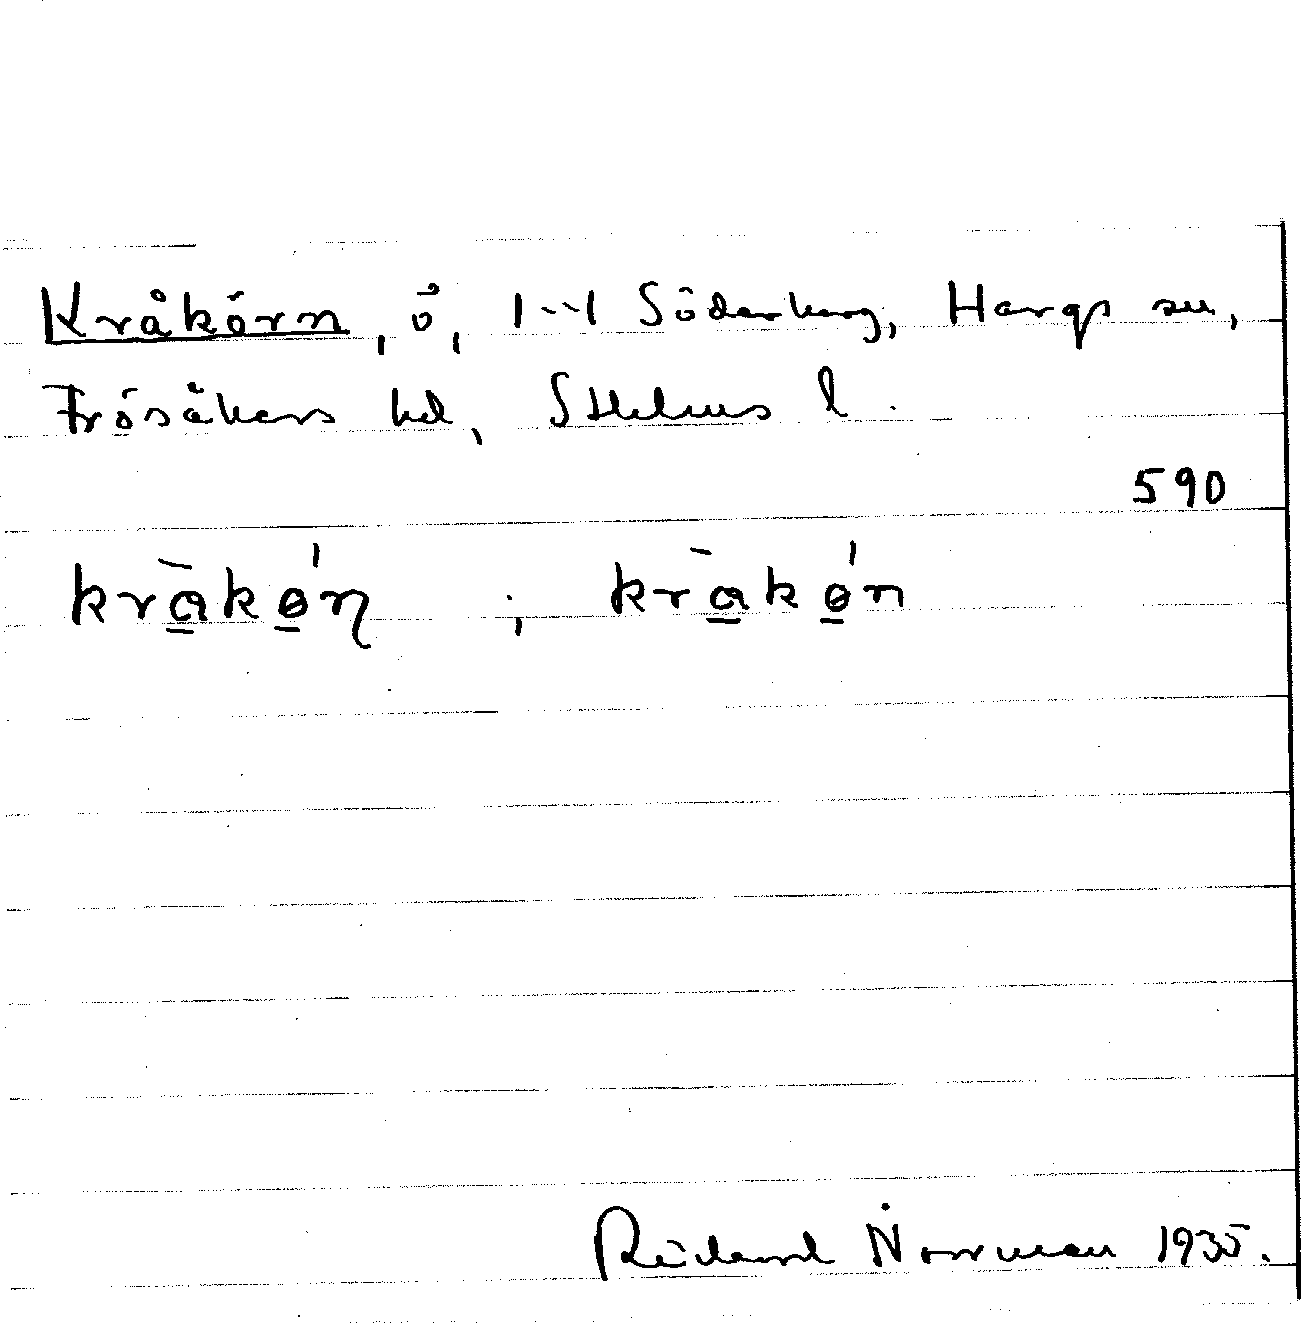 Kråkörn, ö, 1⋅⋅⋅1 Söderberg, Hargs sn,
Frösåkers hd, Sthlms l.
590
kràkǿꞃ ; kràkǿn
Rickard Norrman 1935.